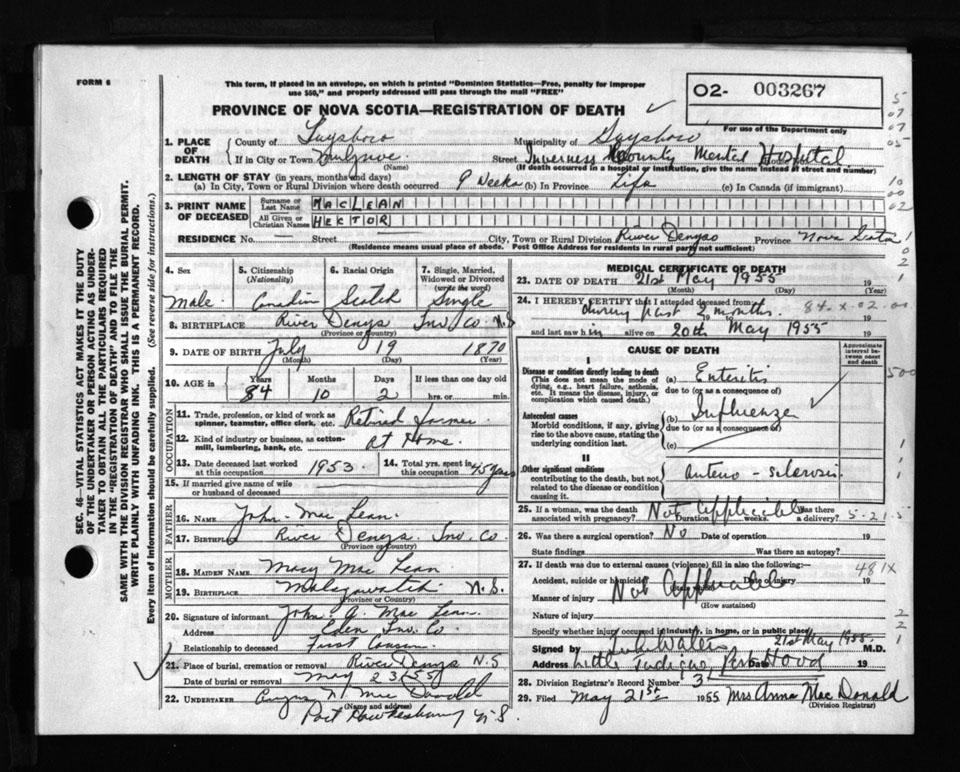 FORM 6
This form, if placed in an envelope, on which is printed "Dominion Statistics—Free, penalty for improper
use $50," and properly addressed will pass through the mail "FREE"
O2- 003267
PROVINCE OF NOVA SCOTIA—REGISTRATION OF DEATH
For use of the Department only
1. PLACE OF DEATH
County of Guysboro Municipality of Guysboro
If in City or Town Mulgrave Street Inverness County Mental Hospital
(Name) (If death occurred in a hospital or institution, give name instead of street and number)
2. LENGTH OF STAY (in years, months and days)
(a) In City, Town or Rural Division where death occurred 9 Weeks (b) In Province Life (c) In Canada (if immigrant)
3. PRINT NAME OF DECEASED
Surname or Last Name MACLEAN
All Given or Christian Names HECTOR
RESIDENCE No. — Street City, Town or Rural Division River Denys Province Nova Scotia
(Residence means usual place of abode. Post Office Address for residents in rural parts not sufficient)
4. Sex
Male
5. Citizenship
(Nationality)
Canadian
6. Racial Origin
Scotch
7. Single, Married,
Widowed or Divorced
(write the word)
Single
8. BIRTHPLACE River Denys Inv. Co. N.S
(Province or Country)
9. DATE OF BIRTH July 19 1870
(Month) (Day) (Year)
10. AGE in Years Months Days If less than one day old
84 10 2 hrs. or min.
OCCUPATION
11. Trade, profession, or kind of work as
spinner, teamster, office clerk, etc. Retired Farmer
12. Kind of industry or business, as cotton-
mill, lumbering, bank, etc. At Home.
13. Date deceased last worked
at this occupation 1953
14. Total yrs. spent in
this occupation 45 years
15. If married give name of wife
or husband of deceased
FATHER
16. NAME John Mac Lean.
17. BIRTHPLACE River Denys. Inv. Co.
(Province or Country)
MOTHER
18. MAIDEN NAME Mary Mac Lean
19. BIRTHPLACE Malagawatch N.S.
(Province or Country)
20. Signature of informant John A. Mac Lean.
Address Eden Inv. Co.
Relationship to deceased First Cousin
21. Place of burial, cremation or removal River Denys N.S
Date of burial or removal May 23/55
22. UNDERTAKER Mac Donald
(Name and address)
Port Hawkesbury N.S.
MEDICAL CERTIFICATE OF DEATH
23. DATE OF DEATH 21st May 1955 19
(Month) (Day) (Year)
24. I HEREBY CERTIFY that I attended deceased from
during past 2 months.
and last saw him alive on 20th May 1955
CAUSE OF DEATH
Approximate
interval be-
tween onset
and death
I
Disease or condition directly leading to death
(This does not mean the mode of
dying, e.g. heart failure, asthenia,
etc. It means the disease, injury, or
complication which caused death.)
(a) Enteritis
due to (or as a consequence of)
Antecedent causes
Morbid conditions, if any, giving
rise to the above cause, stating the
underlying condition last.
(b) Influenza
due to (or as a consequence of)
(c)
II
Other significant conditions
contributing to the death, but not
related to the disease or condition
causing it.
Arterio-sclerosis
25. If a woman, was the death
associated with pregnancy? Not Applicable Duration weeks. Was there
a delivery?
26. Was there a surgical operation? No Date of operation 19
State findings Was there an autopsy?
27. If death was due to external causes (violence) fill in also the following:
Accident, suicide or homicide? Date of injury 19
Manner of injury Not Applicable
(How sustained)
Nature of injury
Specify whether injury occurred in industry, in home, or in public place
21st May 1955.
Signed by M.D.
Address Little Judique, Port Hood 19
28. Division Registrar's Record Number 3
29. Filed May 21st 1955 Mrs Anna Mac Donald
(Division Registrar)
5-21-5
481X
500
SEC. 46—VITAL STATISTICS ACT MAKES IT THE DUTY
OF THE UNDERTAKER OR PERSON ACTING AS UNDER-
TAKER TO OBTAIN ALL THE PARTICULARS REQUIRED
IN THE "REGISTRATION OF DEATH" AND TO FILE THE
SAME WITH THE DIVISION REGISTRAR WHO SHALL ISSUE THE BURIAL PERMIT.
WRITE PLAINLY WITH UNFADING INK. THIS IS A PERMANENT RECORD.
Every item of information should be carefully supplied. (See reverse side for instructions.)